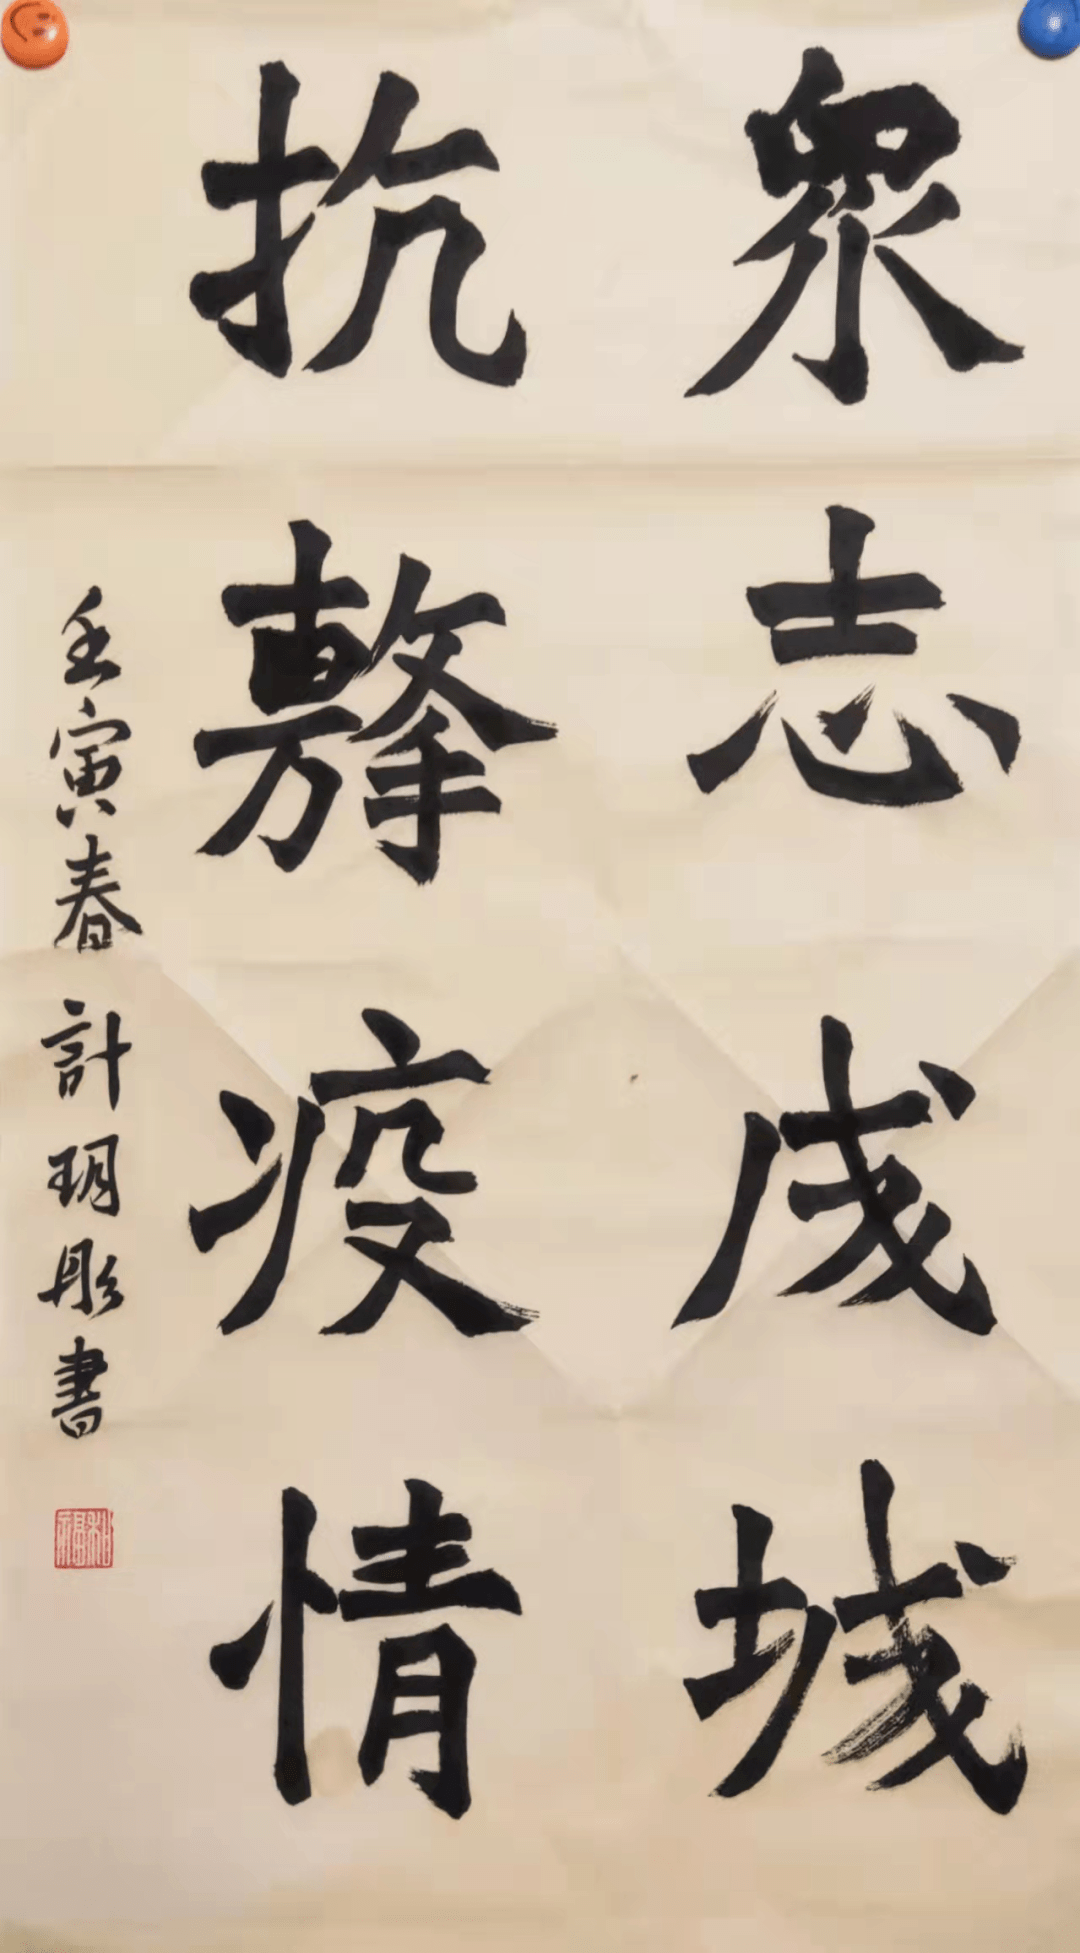 衆志成城
抗擊疫情
壬寅春 計玥彤書